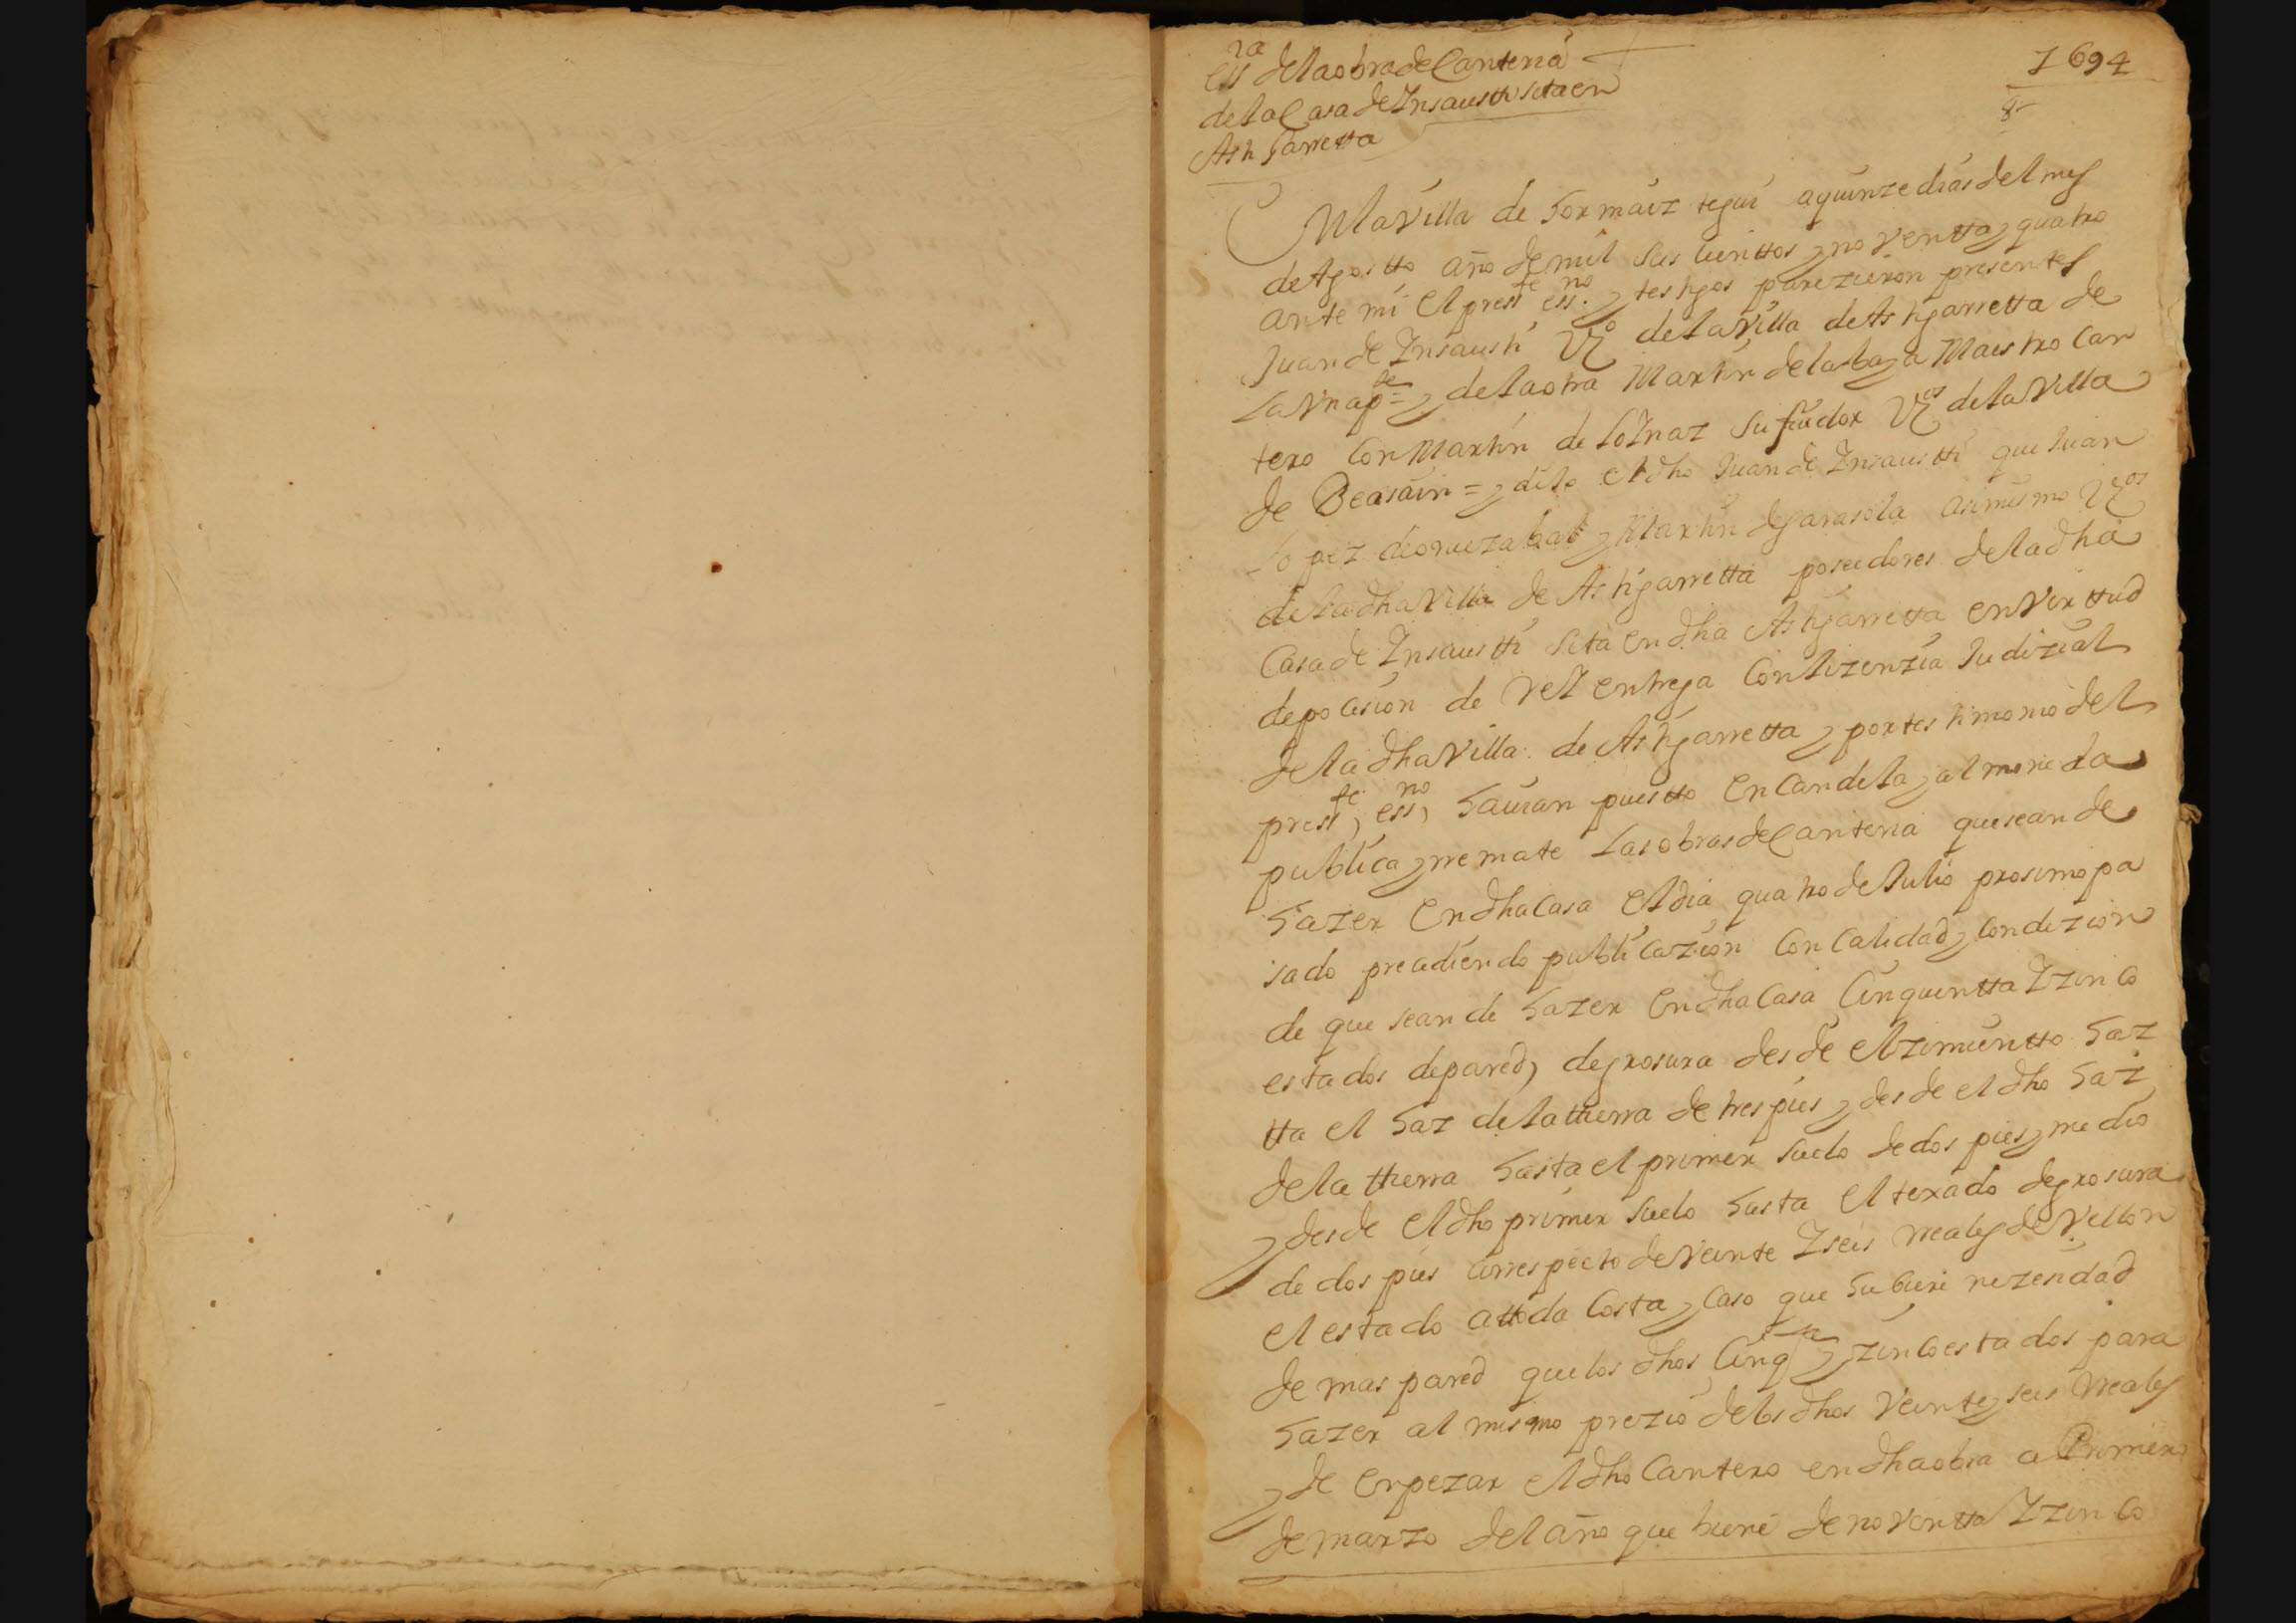 essra de la obra de Canteria
de la Casa de Insausti sita en
Astigarretta
1694
8
En la Villa de Hormaiztegui a quinze dias del mes
de Agostto año de mil seis cienttos y noventta y quatro
ante mi el presste essno y testigos parezieron presentes
Juan de Insausti Vo de la Villa de Astigarretta de
la Vna pte = y de la otra Martin de Maestro Can
tero con Martin de Loinaz su fiador Vos de la Villa
de Beasain = y dijo el dho Juan de Insaustti que Juan
Lopez de oruezabal y Martin de Garasola asimismo Vos
de la dha Villa de Astigarretta poseedores de la dha
Casa de Insaustti sita en dha Astigarretta en Virttud
de posesion de Real entrega con lizenzia Judizial
de la dha Villa de Astigarretta y por testimonio del
presste essno hauian puestto en Candela y almoneda
publica y rremate las obras de Canteria que sean de
hazer en dha Casa el dia quatro de Julio proximo pa
sado prezediendo publicazion con Calidad y condizion
de que sean de hazer en dha Casa Cinquentta I zinco
estados de pared, de grosura desde el zimientto haz
tta el haz de la ttierra de tres pies y desde el dho haz
de la ttierra hasta el primer suelo de dos pies y medio
y desde el dho primer suelo hasta el texado de grosura
de dos pies a rrespecto de Veinte I seis rreales de Vellon
el estado a ttoda Costa y caso que hubiere nezesidad
de mas pared que los dhos Cinqta y zinco estados para
hazer al mismo prezio de los dhos Veinte y seis rreales
y de enpezar el dho Cantero en dha obra a Primero
de marzo del año que biene de noventta I zinco